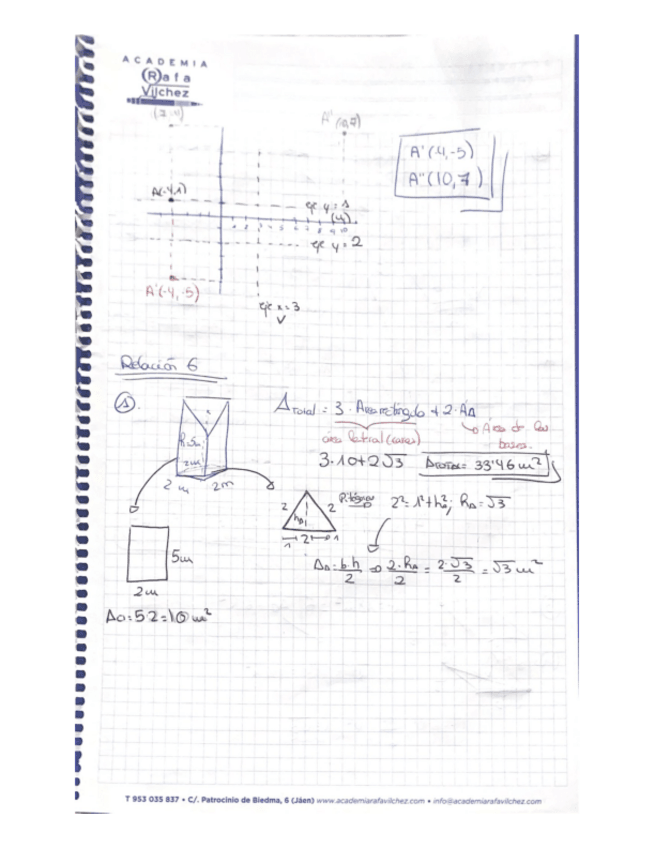 ACADEMIA
Rafa
Vílchez
A" (10,7)
A'(4,-5)
A"(10,7)
A(-4,1)
eje y=1
(4).
eje y=2
A'(-4,-5)
eje x=3
Relación 6
1.
A Total = 3 · Área rectángulo + 2·A△
área lateral (caras)
Área de las
bases.
3·10+2√3
A TOTAL = 33'46 m²
h=5m
2m
2m 2m
2 2
h△
1 2 1
Pitágoras 2²=1²+h²△; h△=√3
5m
2m
A△=b·h/2 ⇒ 2·h△/2 = 2·√3/2 = √3 m²
A□=5·2=10 m²
T 953 035 837 • C/. Patrocinio de Biedma, 6 (Jáen) www.academiarafavilchez.com • info@academiarafavilchez.com